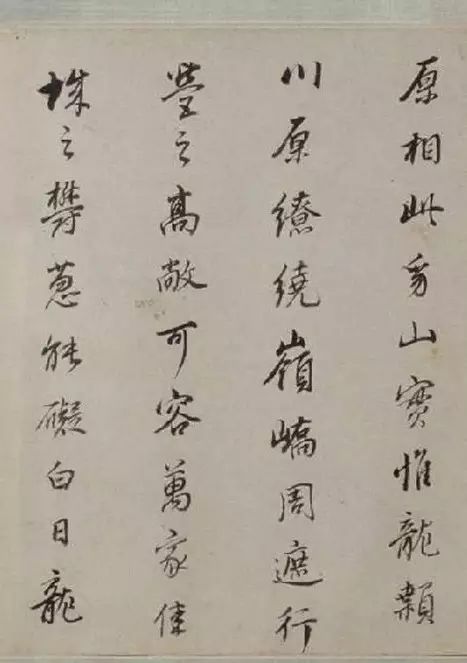 原相此豸山實惟龍顙
川原繚繞嶺嶠周遮行
塋之高敞可容萬家佳
城之欝葱能礙白日龍